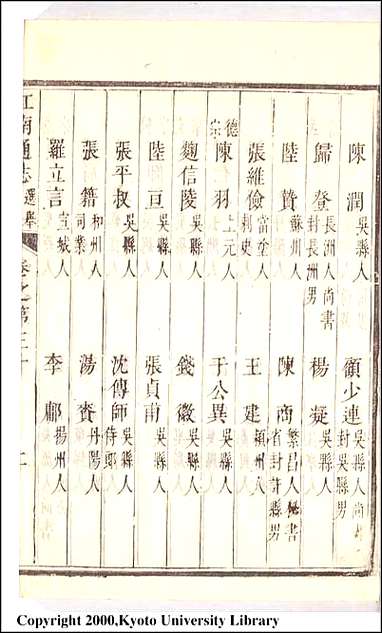 陳潤 吳縣人 顧少連 吳縣人尚書 封吳縣男
歸登 長洲人尚書 封長洲男 楊凝 吳縣人
陸贄 蘇州人 陳商 繁昌人秘書 省封許縣男
張維儉 當塗人 刺史 王建 潁州人
德宗 陳羽 上元人 于公異 吳縣人
麴信陵 吳縣人 錢徽 吳縣人
陸亘 吳縣人 張貞甫 吳縣人
張平叔 吳縣人 沈傳師 吳縣人 侍郎
張籍 和州人 司業 湯賚 丹陽人
羅立言 宣城人 李鄘 揚州人
江南通志 選舉 卷之第三十
Copyright 2000,Kyoto University Library